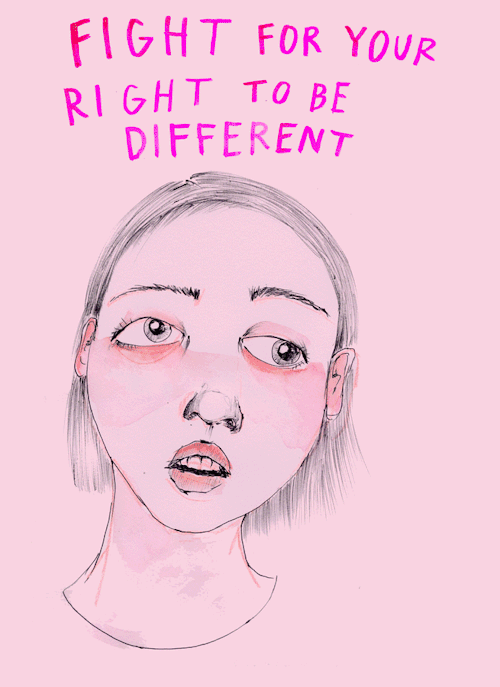 FIGHT FOR YOUR
RIGHT TO BE
DIFFERENT